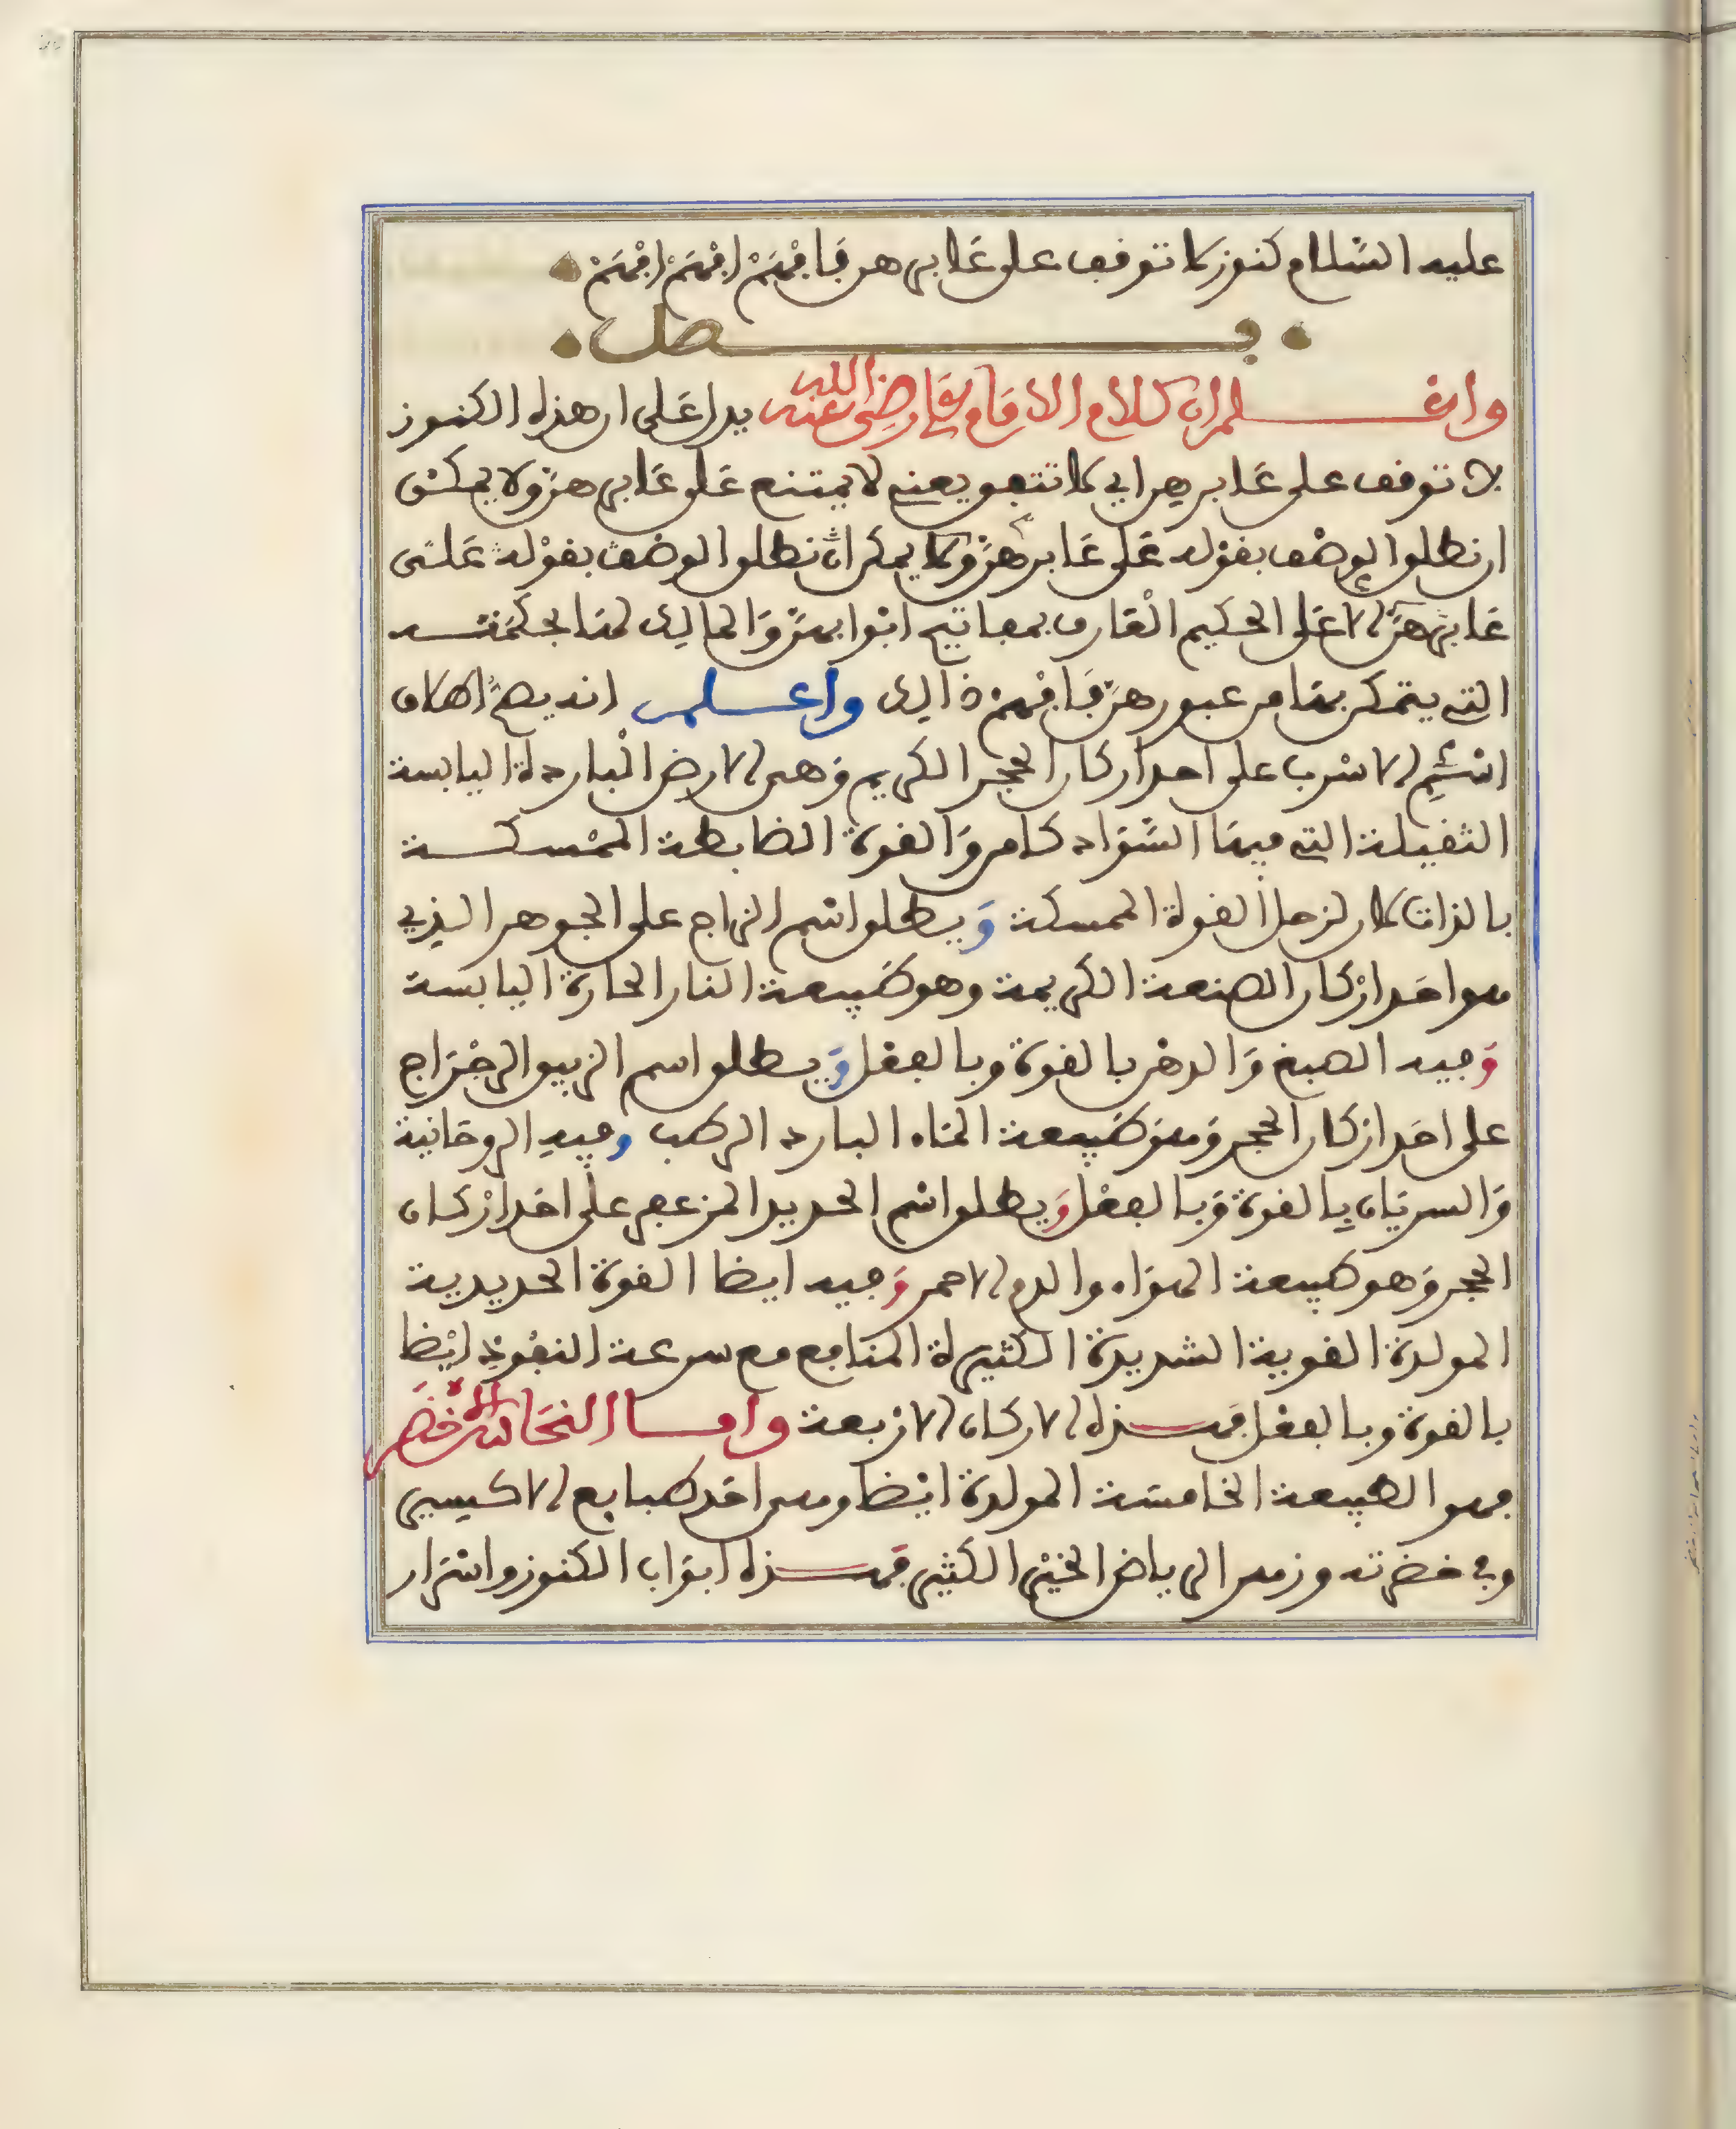 عليه السلام كنوز لا توقف على عابرهن فافهم افهم افهم
فصل
واعلم ان كلام الامام علي رضي الله عنه يدل على ان هذه الكنوز
لا توقف على عابرهن اي لا تتفق يعني لا يمتنع على عابرهن ولا يمكن
ان نطلق الوقف بقوله على عابرهن ولا يمكن ان نطلق الوقف بقوله على
عابرهن الا على الحكيم العارف بمفاتيح ابوابهن والمالك لها بحكمته
التي يتمكن بها من عبورهن فافهم ذالك واعلم انه يصح اطلاق
اسم الاسرب على احد اركان الحجر الكريم وهي الارض الباردة اليابسة
الثقيلة التي فيها السواد كامن والقوة الضابطة الممسكة
بالذات كما لزحل القوة الممسكة ويطلق اسم الزاج على الجوهر الذي
هو احد اركان الصنعة الكريمة وهو طبيعة النار الحارة اليابسة
وفيه الصبغ والدهن بالقوة وبالفعل ويطلق اسم الزيبق الرجراج
على احد اركان الحجر وهو طبيعة الماء البارد الرطب وفيه الروحانية
والسريان بالقوة وبالفعل ويطلق اسم الحديد المزعفر على احد اركان
الحجر وهو طبيعة الهواء والدم الاحمر وفيه ايضا القوة الحديدية
المولدة القوية الشديدة الكثيرة المنافع مع سرعة النفوذ ايضا
بالقوة وبالفعل فهذه الاركان الاربعة واما النحاس الاخضر
فهو الطبيعة الخامسة المولدة ايضا وهي احد طبايع الاكسير
وفي خضرته وزهر الرياض الخير الكثير فهذه ابواب الكنوز واسرار